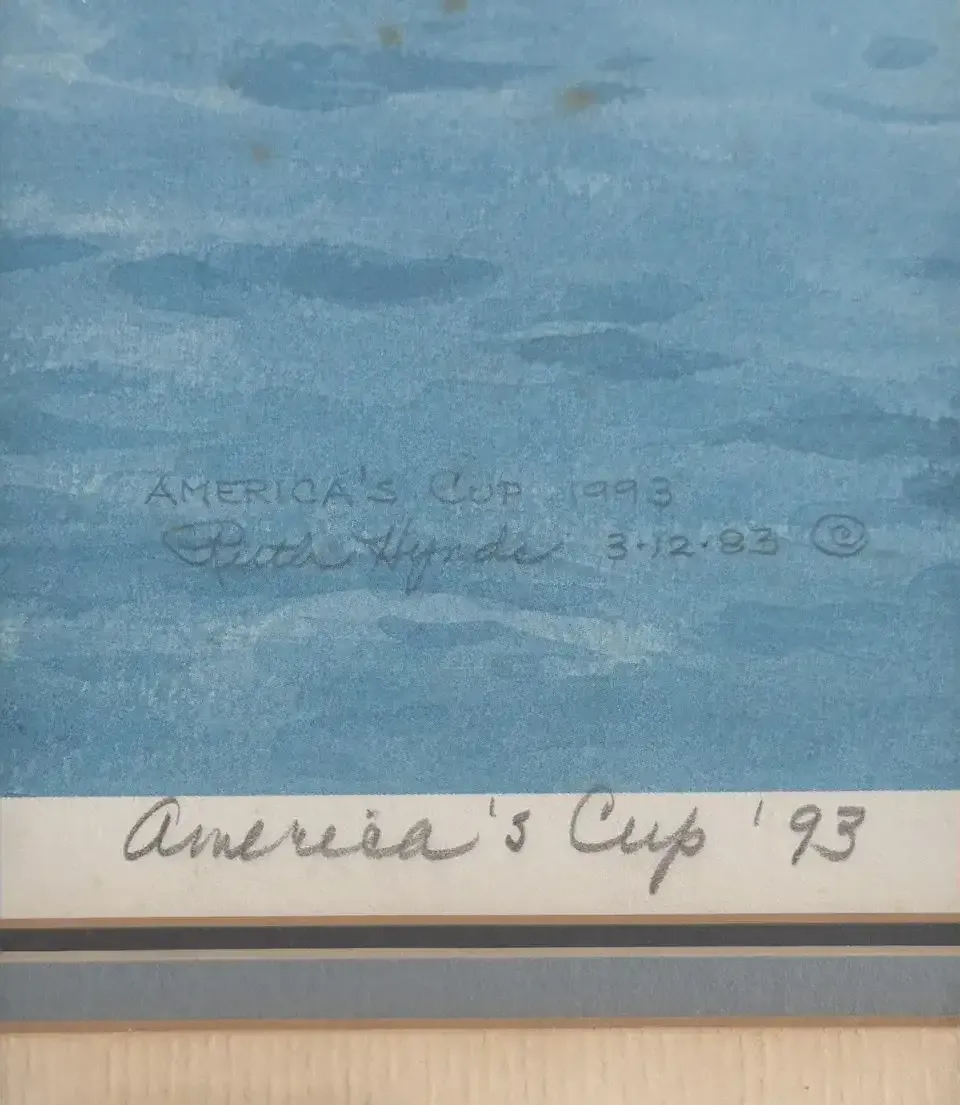 AMERICA'S CUP 1993
Ruth Hynds 3·12·83 ©
America's Cup '93